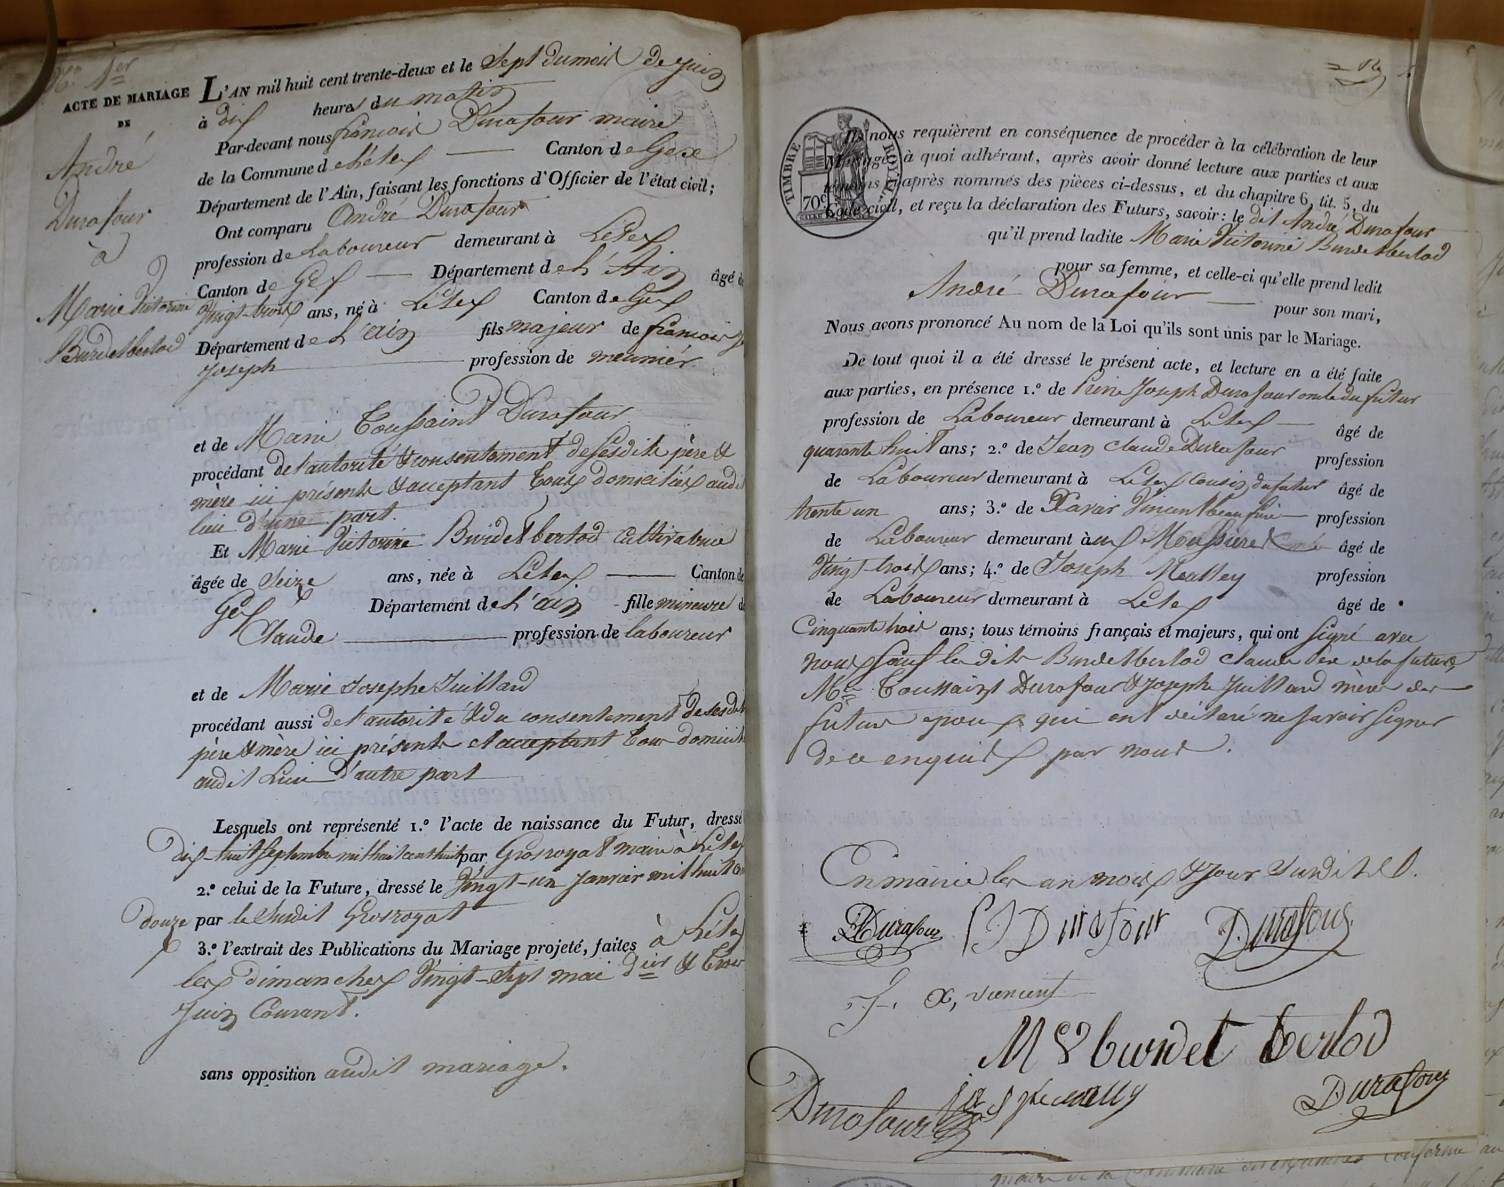 N.o 1er
ACTE DE MARIAGE
DE
André
Durafour
à
Marie Victorine
Burdet berlod
L'AN mil huit cent trente-deux et le Sept du mois de juin
à dix heures du matin
Par-devant nous françois Durafour maire
de la Commune de Lélex — Canton de Gex
Département de l'Ain, faisant les fonctions d'Officier de l'état civil;
Ont comparu André Durafour
profession de Laboureur demeurant à Lélex
Canton de Gex — Département de L'Ain âgé de
Vingt-trois ans, né à Lélex Canton de Gex
Département de L'ain fils majeur de françois
joseph — profession de meunier
et de Marie Toussaint Durafour
procédant de l'autorité & consentement de ses dits père &
mère ici présents & acceptant Tous domiciliés audit
lieu d'une part.
Et Marie Victorine Burdet berlod cultivatrice
âgée de Seize ans, née à Lélex — Canton de
Gex Département de L'ain fille mineure de
Claude — profession de laboureur
et de Marie Josephe Juillard
procédant aussi de l'autorité & du consentement de ses dits
père & mère ici présents et acceptant Tous domiciliés
audit Lieu D'autre part
Lesquels ont représenté 1.º l'acte de naissance du Futur, dressé
dix-huit septembre mil huit cent huit par Grosroyat maire à Lélex
2.º celui de la Future, dressé le Vingt-un janvier mil huit cent
douze par le Susdit Grosroyat
3.º l'extrait des Publications du Mariage projeté, faites à Lélex
les dimanches Vingt-Sept mai dier & trois
Juin Courant.
sans opposition audit mariage.
TIMBRE ROYAL
70c
Ils nous requièrent en conséquence de procéder à la célébration de leur
Mariage, à quoi adhérant, après avoir donné lecture aux parties et aux
témoins ci-après nommés des pièces ci-dessus, et du chapitre 6, tit. 5, du
Code civil, et reçu la déclaration des Futurs, savoir: le dit André Durafour
qu'il prend ladite Marie Victorine Burdet berlod
pour sa femme, et celle-ci qu'elle prend ledit
André Durafour — pour son mari,
Nous avons prononcé Au nom de la Loi qu'ils sont unis par le Mariage.
De tout quoi il a été dressé le présent acte, et lecture en a été faite
aux parties, en présence 1.º de Pierre Joseph Durafour oncle du futur
profession de Laboureur demeurant à Lélex — âgé de
quarante huit ans; 2.º de Jean Claude Durafour profession
de Laboureur demeurant à Lélex cousin du futur âgé de
trente un ans; 3.º de Xavier Vincent beau frère — profession
de Laboureur demeurant à aux Moussieres âgé de
Vingt trois ans; 4.º de Joseph Mealley profession
de Laboureur demeurant à Lélex âgé de
Cinquante trois ans; tous témoins français et majeurs, qui ont signé avec
nous sauf le dit Burdet berlod claude père de la future
Mie Toussaint Durafour & Josephe Juillard mères des
futurs epoux qui ont déclaré ne savoir signer
de ce enquis par nous.
En mairie les an mois & jour Susdits.
Durafour P J Durafour Durafour
f. x, vincent
M V burdet berlod
Durafour Durafour